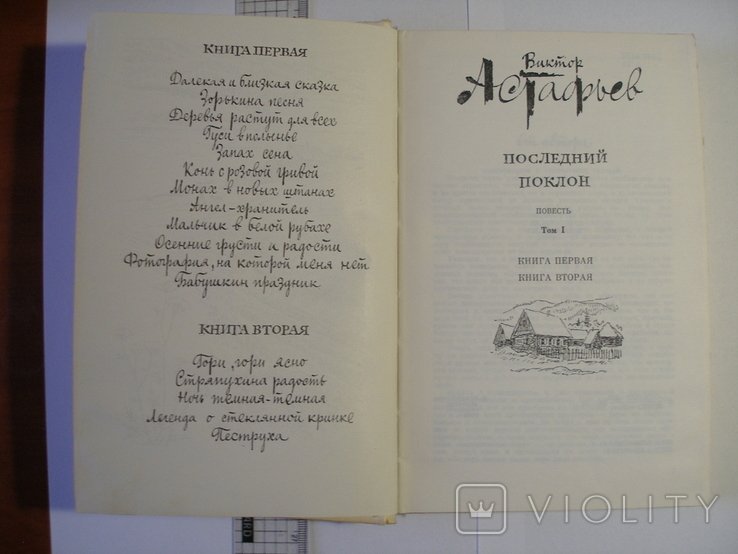 КНИГА ПЕРВАЯ
Далекая и близкая сказка
Зорькина песня
Деревья растут для всех
Гуси в полынье
Запах сена
Конь с розовой гривой
Монах в новых штанах
Ангел-хранитель
Мальчик в белой рубахе
Осенние грусти и радости
Фотография, на которой меня нет
Бабушкин праздник
КНИГА ВТОРАЯ
Гори, гори ясно
Стряпухина радость
Ночь темная-темная
Легенда о стеклянной кринке
Пеструха
Виктор
Астафьев
ПОСЛЕДНИЙ
ПОКЛОН
ПОВЕСТЬ
Том I
КНИГА ПЕРВАЯ
КНИГА ВТОРАЯ
VIOLITY